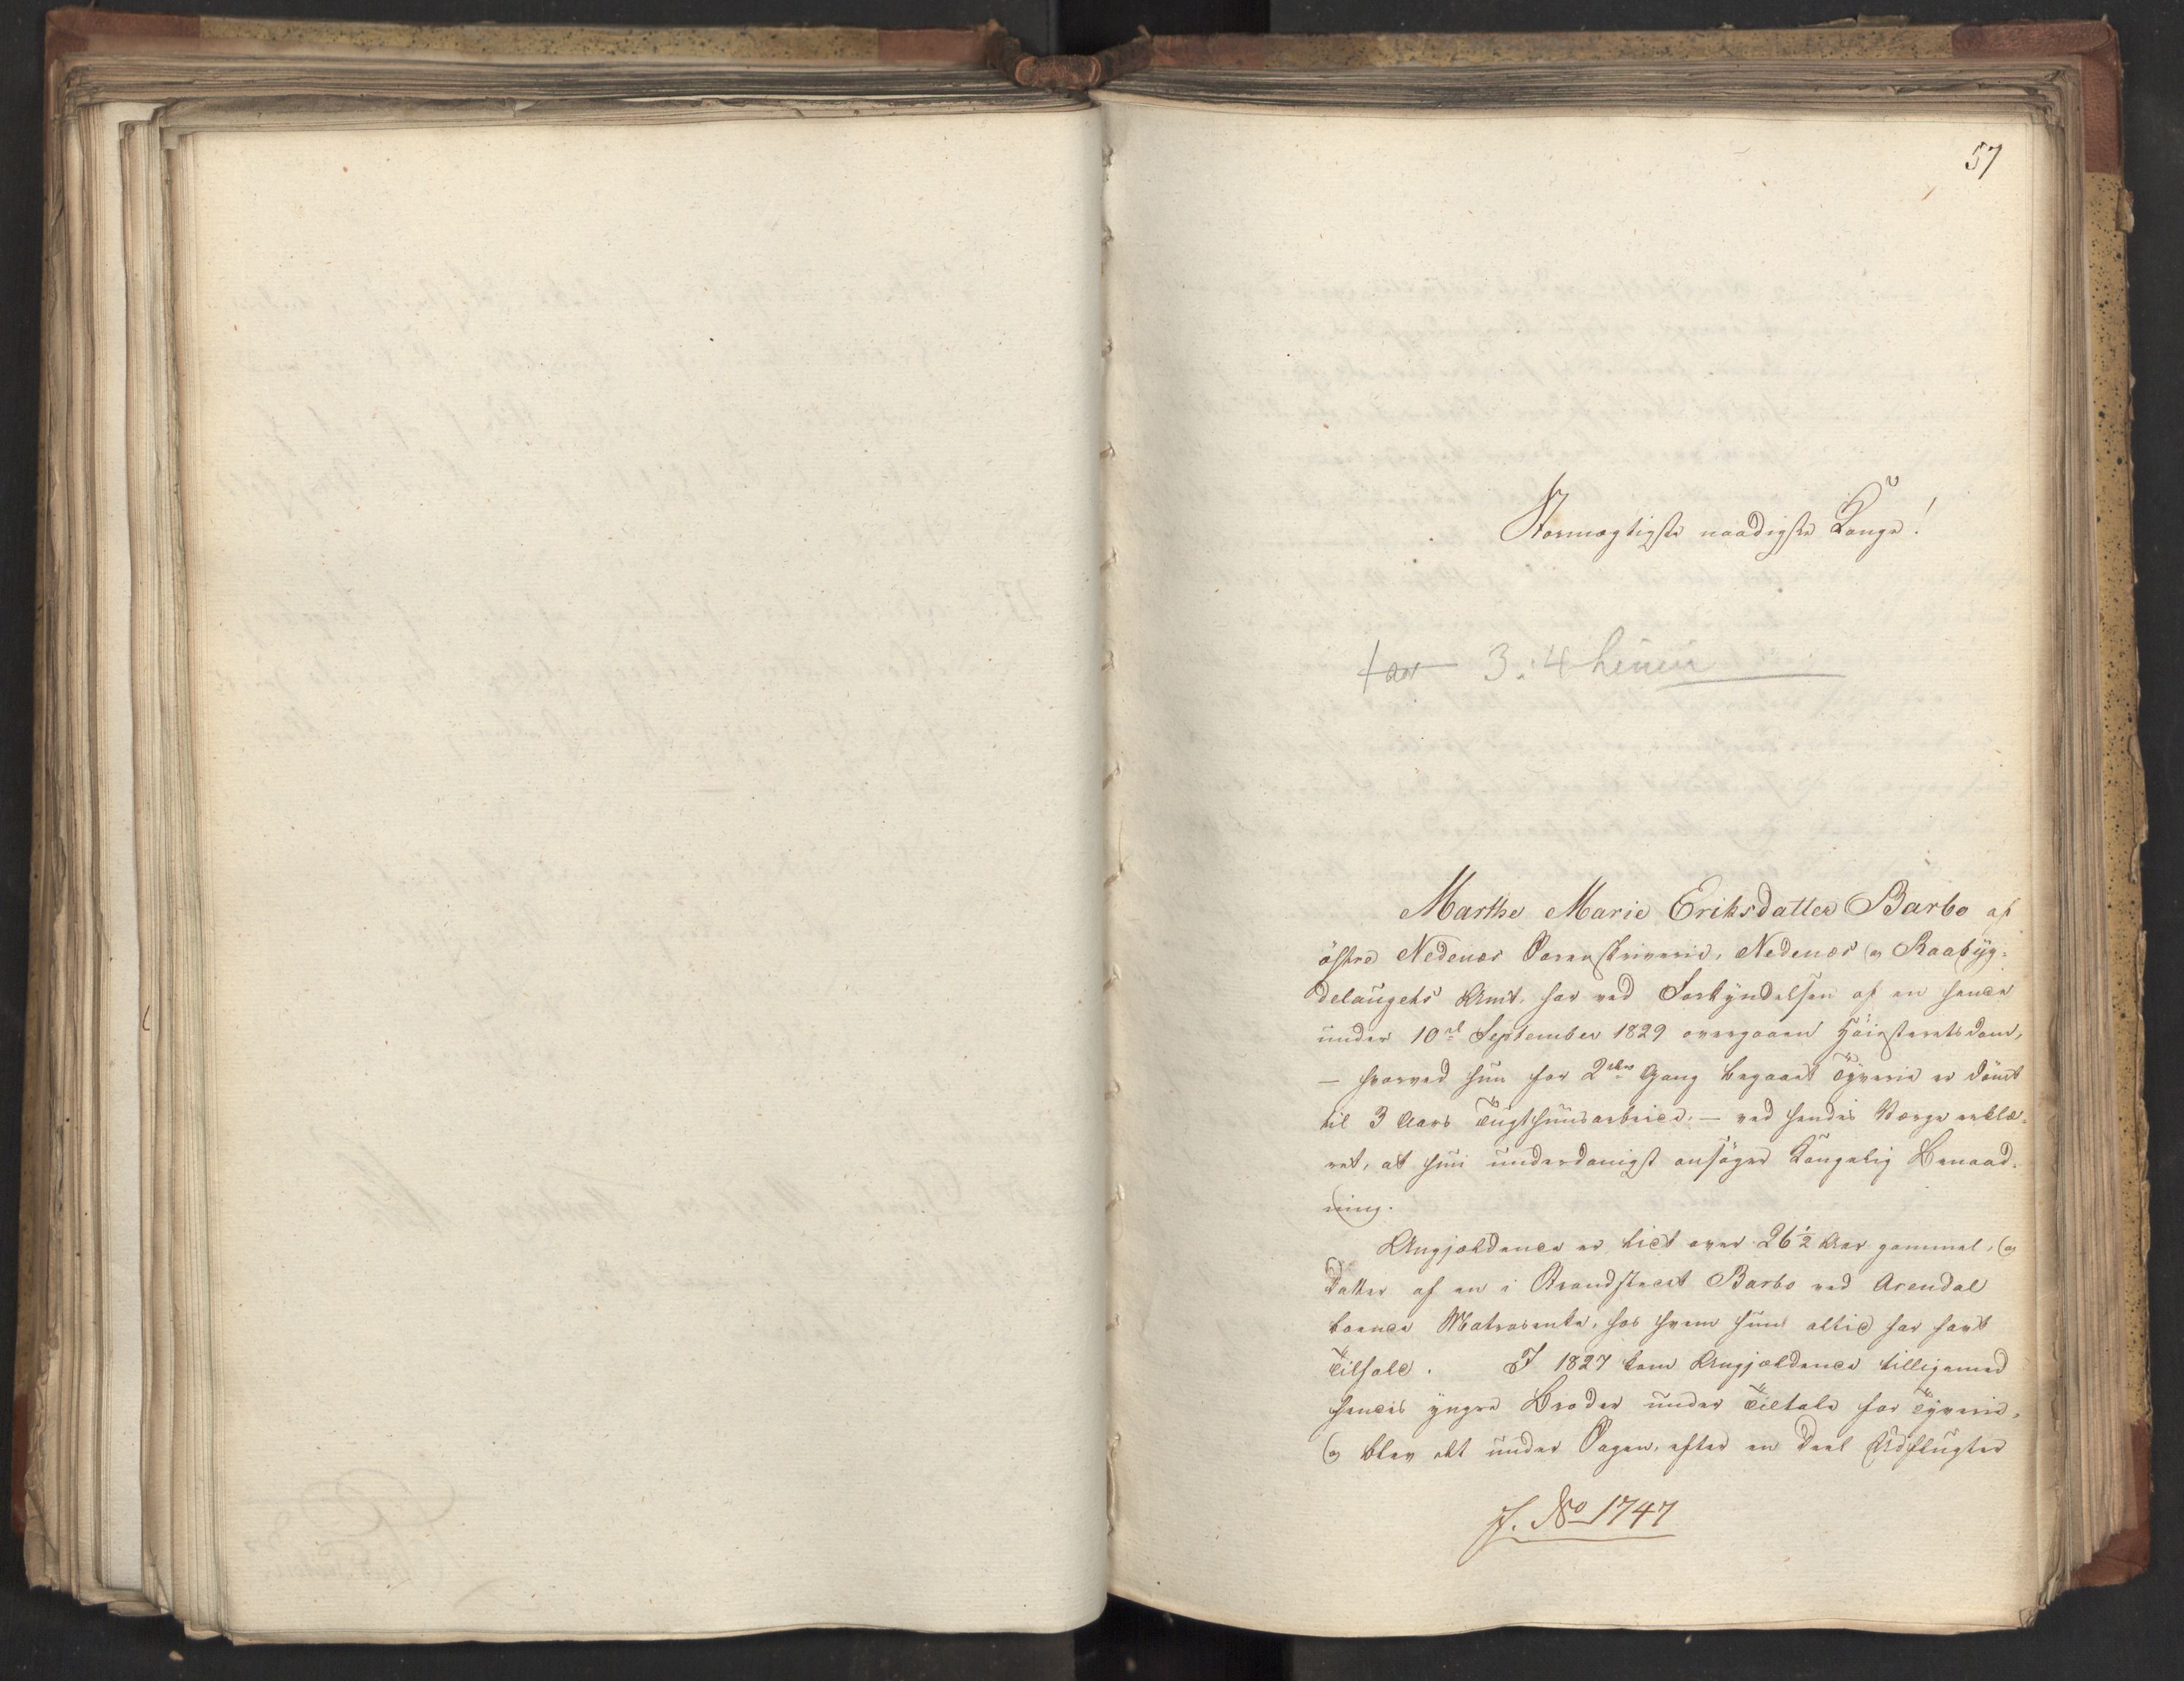 57
Stormægtigste naadigste Konge!
3: 4
Marthe Marie Eriksdatter Barbo af
östre Nedenæs Sorenskriverie, Nedenæs og Raabÿg-
delaugets Amt, har ved Forkÿndelsen af en hende
under 10de September 1829 overgaaen Höiesteretsdom,
— hvorved hun for 2den Gang begaaet Tÿverie er dömt
til 3 Aars Tugthuusarbeide, — ved hendes Værge erklæ-
ret, at hun underdanigst ansöger Kongelig Benaad-
ning.
Angjældende er lidt over 26½ Aar gammel, og
Datter af en i Strandstedet Barbo ved Arendal
boende Matrosenke, hos hvem hun altid har havt
Tilhold. I 1827 kom Angjældende tilligemed
hendes yngre Broder under Tiltale for Tÿverie,
og blev det under Sagen, efter en Deel Udflugter
J. No 1747